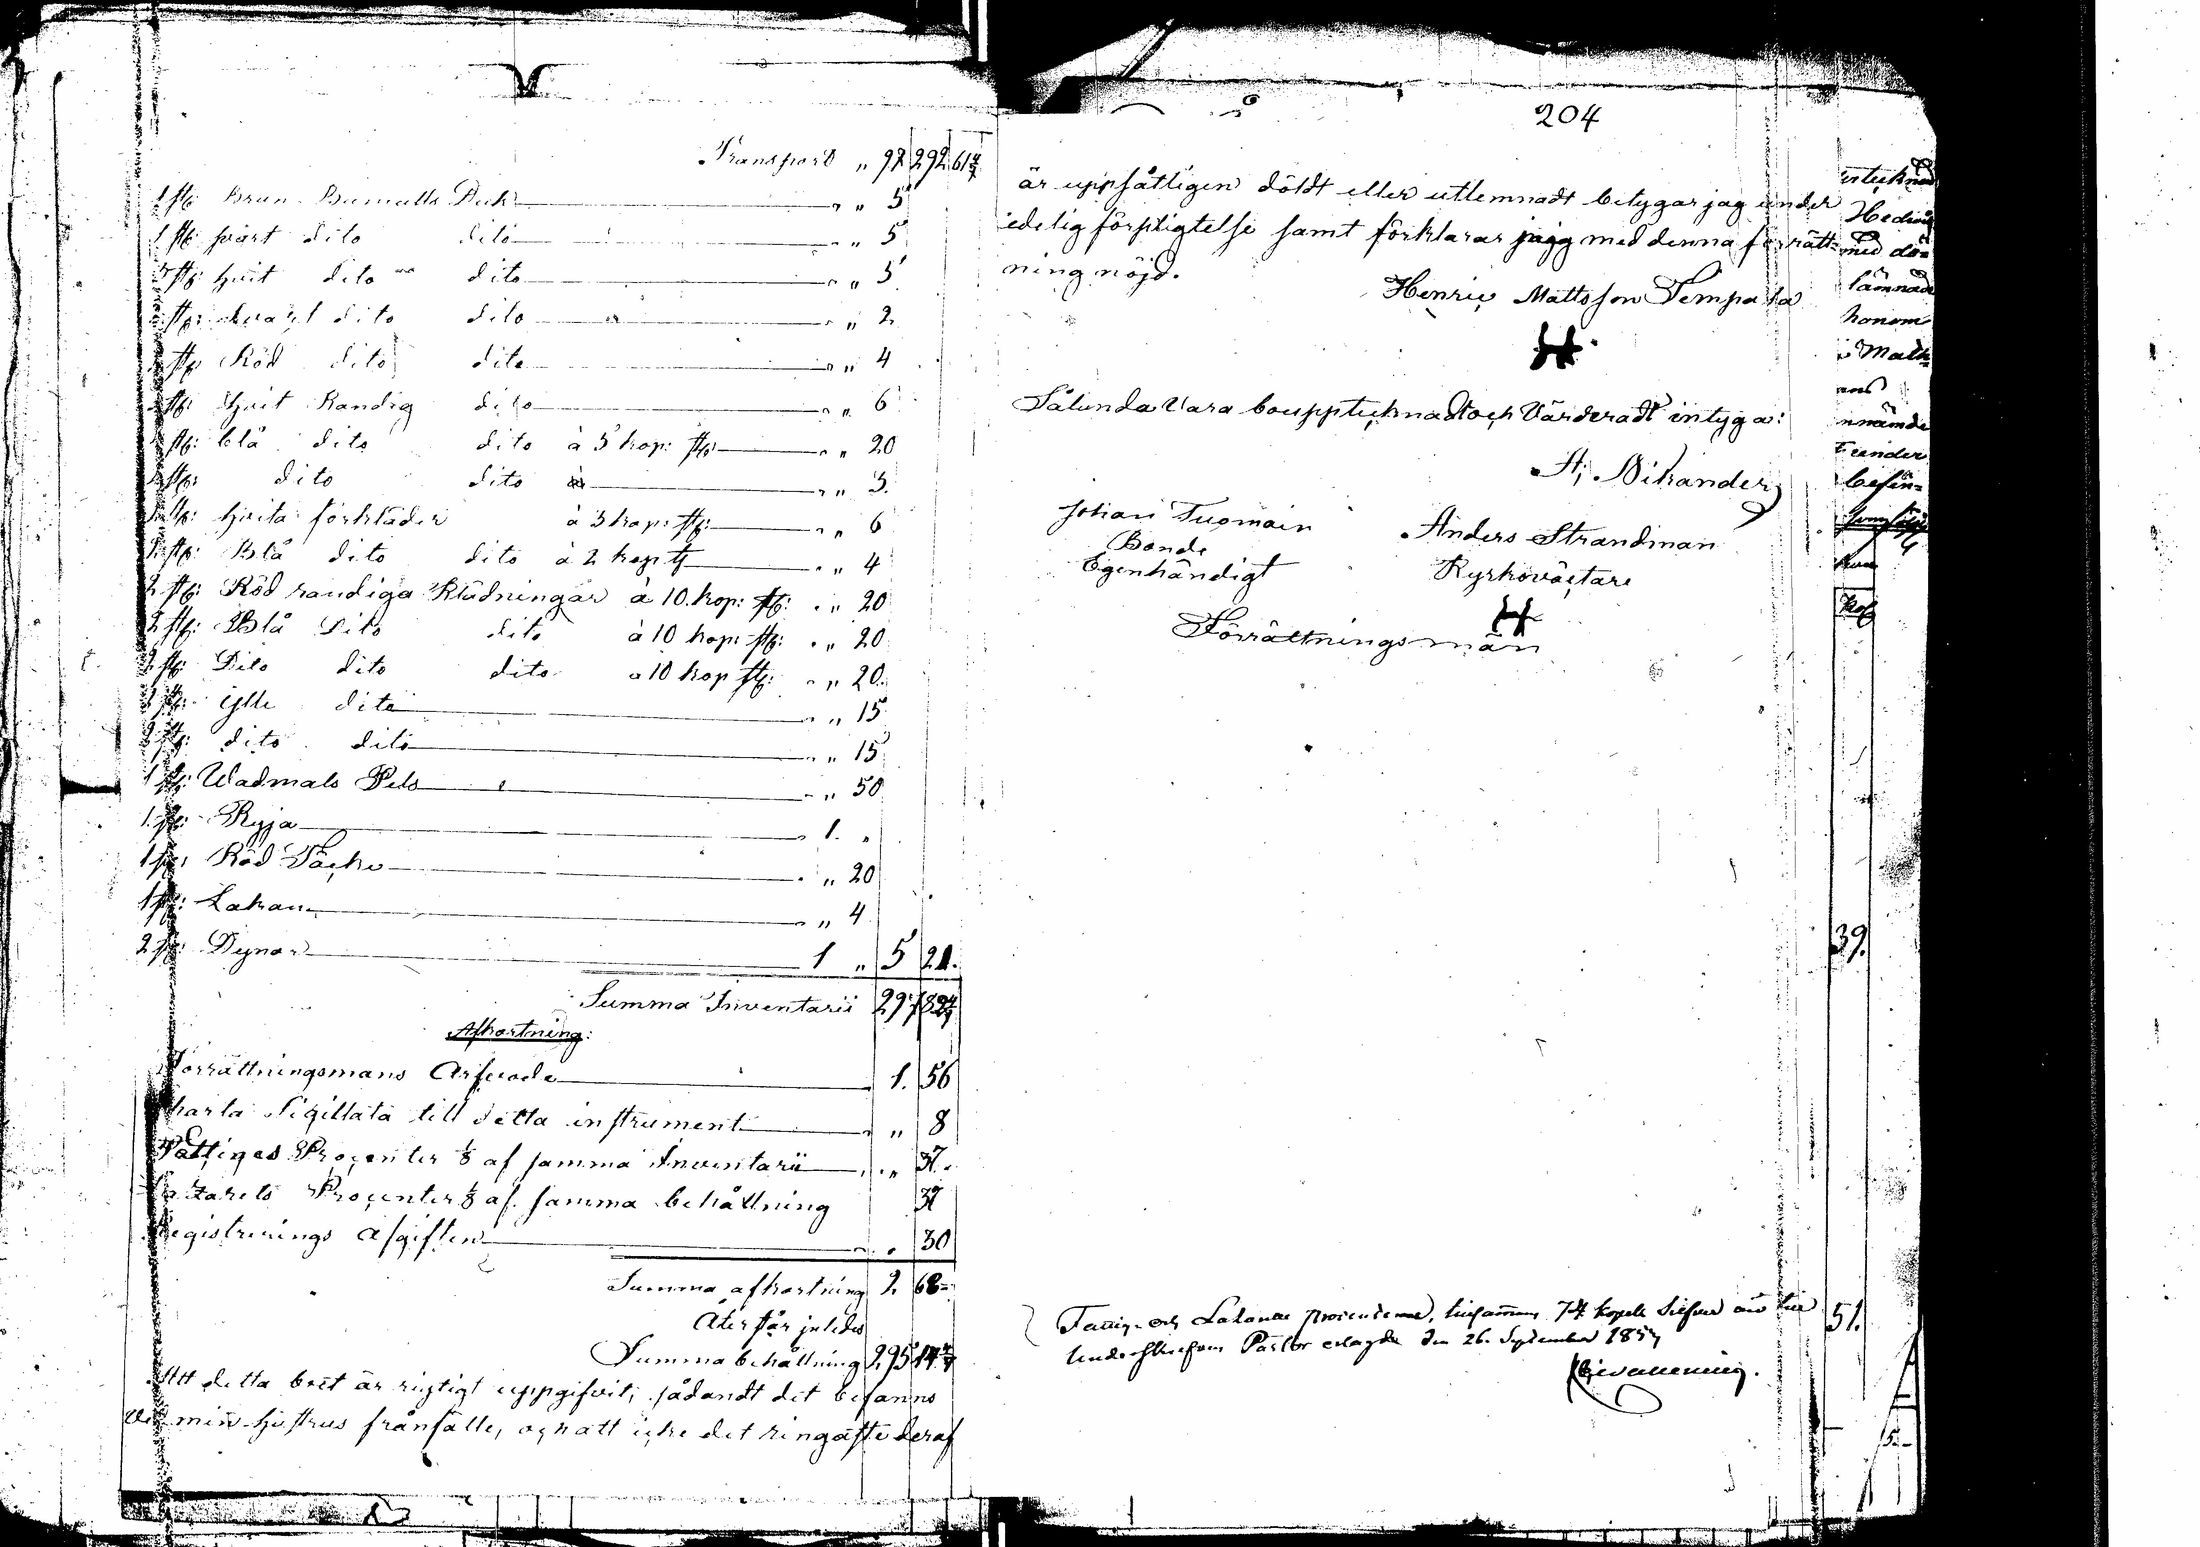 Transport " 97 292 61 4/7
1 st: Brun Bumulls Duk " 5
1 st: svart dito dito " 5
st: hvit dito dito " 5
st: svart dito dito " 2
st: Röd dito dito " 4
st: hvit Randig dito " 6
st: blå dito dito à 5 kop: st: " 20
st: dito dito " 3.
st: hvita förkläder à 3 kop: st: " 6
st: Blå dito dito à 2 kop st " 4
2 st: Röd randiga Klädningar à 10. kop: st: " 20
2 st: Blå Dito dito à 10 kop: st: " 20
2 st: Dito dito dito à 10 kop st: " 20.
st: ylle dito " 15
st: dito dito " 15
1 st: Wadmals Pels " 50
1. st: Ryja 1. "
1 st: Röd Täcke " 20
1 st: Lakan " 4
2 st: Dynor 1 " 5 21.
Summa Inventarii 297 82 4/7
Afkortning:
Förrättningsmans Arfvode 1. 56
Charta Sigillata till detta instrument " 8
Fattiges Procenter 1/8 af samma Inventarii " 37.
Procenter 1/8 af samma behållning 37
Registrerings afgiften " 30
Summa afkortning 2 68
Återstår således
Summa behållning 295 14 4/7
Att detta boet är rigtigt uppgifvit, sådandt det befanns
vid min hustrus frånfälle, och att icke det ringaste deraf
204
är uppsåtligen döldt eller utlemnadt betygar jag under
edelig förpligtelse samt förklarar jagg med denna förrätt-
ning nöjd.
Henric Mattsson Tempala
Sålunda Vara bouppteknadt och Värderadt intyga:
Nikander
Johan Tuomain
Bonde
Egenhändigt
Anders Strandman
Kyrkoväctare
Förrättningsmän
Fattig- och procenterne, tillsammans 74 kopek Silfver
Pastor erlagde den 26. September 1857
Hedvig
med dö=
lämnade
honom
Math
nnämde
under
befin=
kop
39.
51.